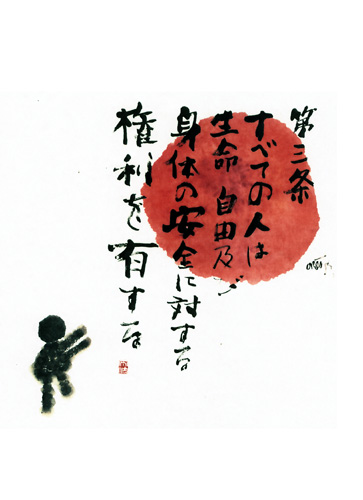 第三条
すべての人は
生命 自由及び
身体の安全に対する
権利を有する